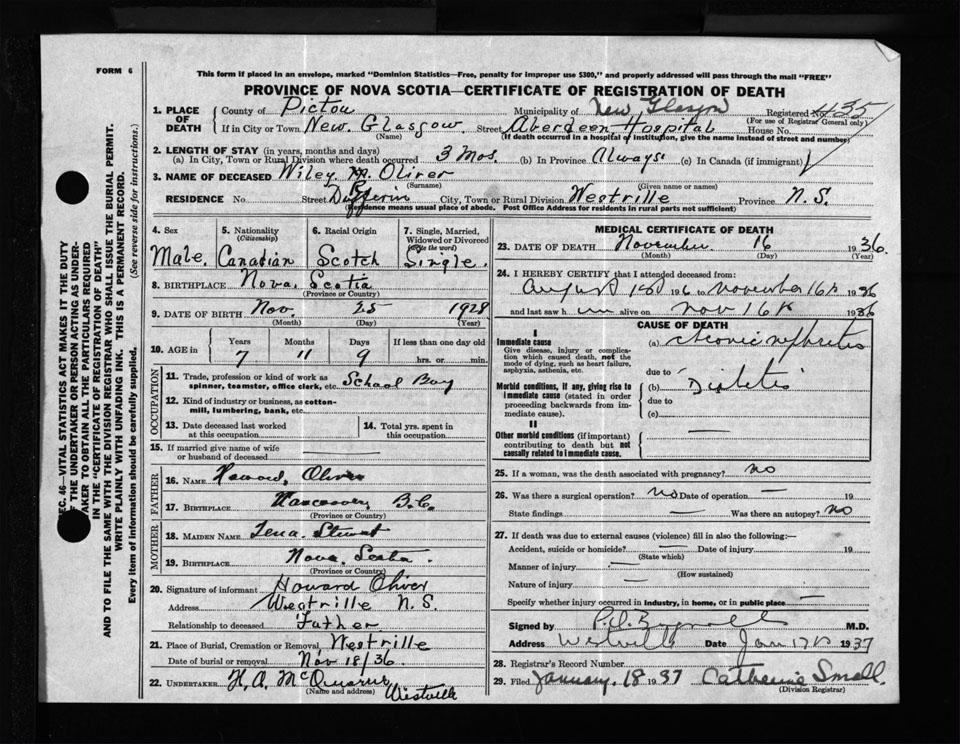 FORM 6
This form if placed in an envelope, marked "Dominion Statistics—Free, penalty for improper use $300," and properly addressed will pass through the mail "FREE"
PROVINCE OF NOVA SCOTIA—CERTIFICATE OF REGISTRATION OF DEATH
1. PLACE OF DEATH County of Pictou Municipality of New Glasgow Registered No. 435
(For use of Registrar General only)
If in City or Town New Glasgow Street Aberdeen Hospital House No.
(Name) (If death occurred in a hospital or institution, give the name instead of street and number)
2. LENGTH OF STAY (in years, months and days)
(a) In City, Town or Rural Division where death occurred 3 Mos. (b) In Province Always (c) In Canada (if immigrant)
3. NAME OF DECEASED Wiley Oliver
(Surname) (Given name or names)
RESIDENCE No. Street Dufferin City, Town or Rural Division Westville Province N.S.
(Residence means usual place of abode. Post Office Address for residents in rural parts not sufficient)
4. Sex 5. Nationality (Citizenship) 6. Racial Origin 7. Single, Married, Widowed or Divorced (write the word)
Male. Canadian Scotch Single.
8. BIRTHPLACE Nova Scotia
(Province or Country)
9. DATE OF BIRTH Nov. 25 1928
(Month) (Day) (Year)
10. AGE in Years Months Days If less than one day old
7 11 9 hrs. or min.
OCCUPATION
11. Trade, profession or kind of work as spinner, teamster, office clerk, etc. School Boy
12. Kind of industry or business, as cotton-mill, lumbering, bank, etc.
13. Date deceased last worked at this occupation
14. Total yrs. spent in this occupation
15. If married give name of wife or husband of deceased
FATHER
16. NAME Howard Oliver
17. BIRTHPLACE Vancouver, B.C.
(Province or Country)
MOTHER
18. MAIDEN NAME Tena Stewart
19. BIRTHPLACE Nova Scotia
(Province or Country)
20. Signature of informant Howard Oliver
Address Westville N.S.
Relationship to deceased Father
21. Place of Burial, Cremation or Removal Westville
Date of burial or removal Nov 18/36
22. UNDERTAKER H. A. McQuarrie
(Name and address) Westville
MEDICAL CERTIFICATE OF DEATH
23. DATE OF DEATH November 16 1936
(Month) (Day) (Year)
24. I HEREBY CERTIFY that I attended deceased from:
August 193 6 to November 16th 1936
and last saw him alive on Nov 16th 1936
CAUSE OF DEATH
I
Immediate cause
Give disease, injury or complication which caused death, not the mode of dying, such as heart failure, asphyxia, asthenia, etc.
(a) chronic nephritis
due to
Morbid conditions, if any, giving rise to immediate cause (stated in order proceeding backwards from immediate cause).
(b) Diabetes
due to
(c)
II
Other morbid conditions (if important) contributing to death but not causally related to immediate cause.
25. If a woman, was the death associated with pregnancy? no
26. Was there a surgical operation? no Date of operation — 19
State findings — Was there an autopsy? no
27. If death was due to external causes (violence) fill in also the following:—
Accident, suicide or homicide? — Date of injury 19
(State which)
Manner of injury —
(How sustained)
Nature of injury —
Specify whether injury occurred in industry, in home, or in public place —
Signed by M.D.
Address Westville Date Jan 17th 1937
28. Registrar's Record Number
29. Filed January 18 1937 Catherine Small.
(Division Registrar)
SEC. 46—VITAL STATISTICS ACT MAKES IT THE DUTY
OF THE UNDERTAKER OR PERSON ACTING AS UNDERTAKER TO OBTAIN ALL THE PARTICULARS REQUIRED
IN THE "CERTIFICATE OF REGISTRATION OF DEATH"
AND TO FILE THE SAME WITH THE DIVISION REGISTRAR WHO SHALL ISSUE THE BURIAL PERMIT.
WRITE PLAINLY WITH UNFADING INK. THIS IS A PERMANENT RECORD.
Every item of information should be carefully supplied. (See reverse side for instructions.)